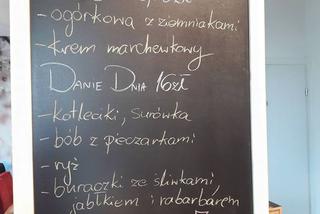 - ogórkowa z ziemniakami
- krem marchewkowy
DANIE DNIA 16zł
- kotleciki, surówka
- bób z pieczarkami
- ryż
- buraczki ze śliwkami,
jabłkiem i rabarbarem